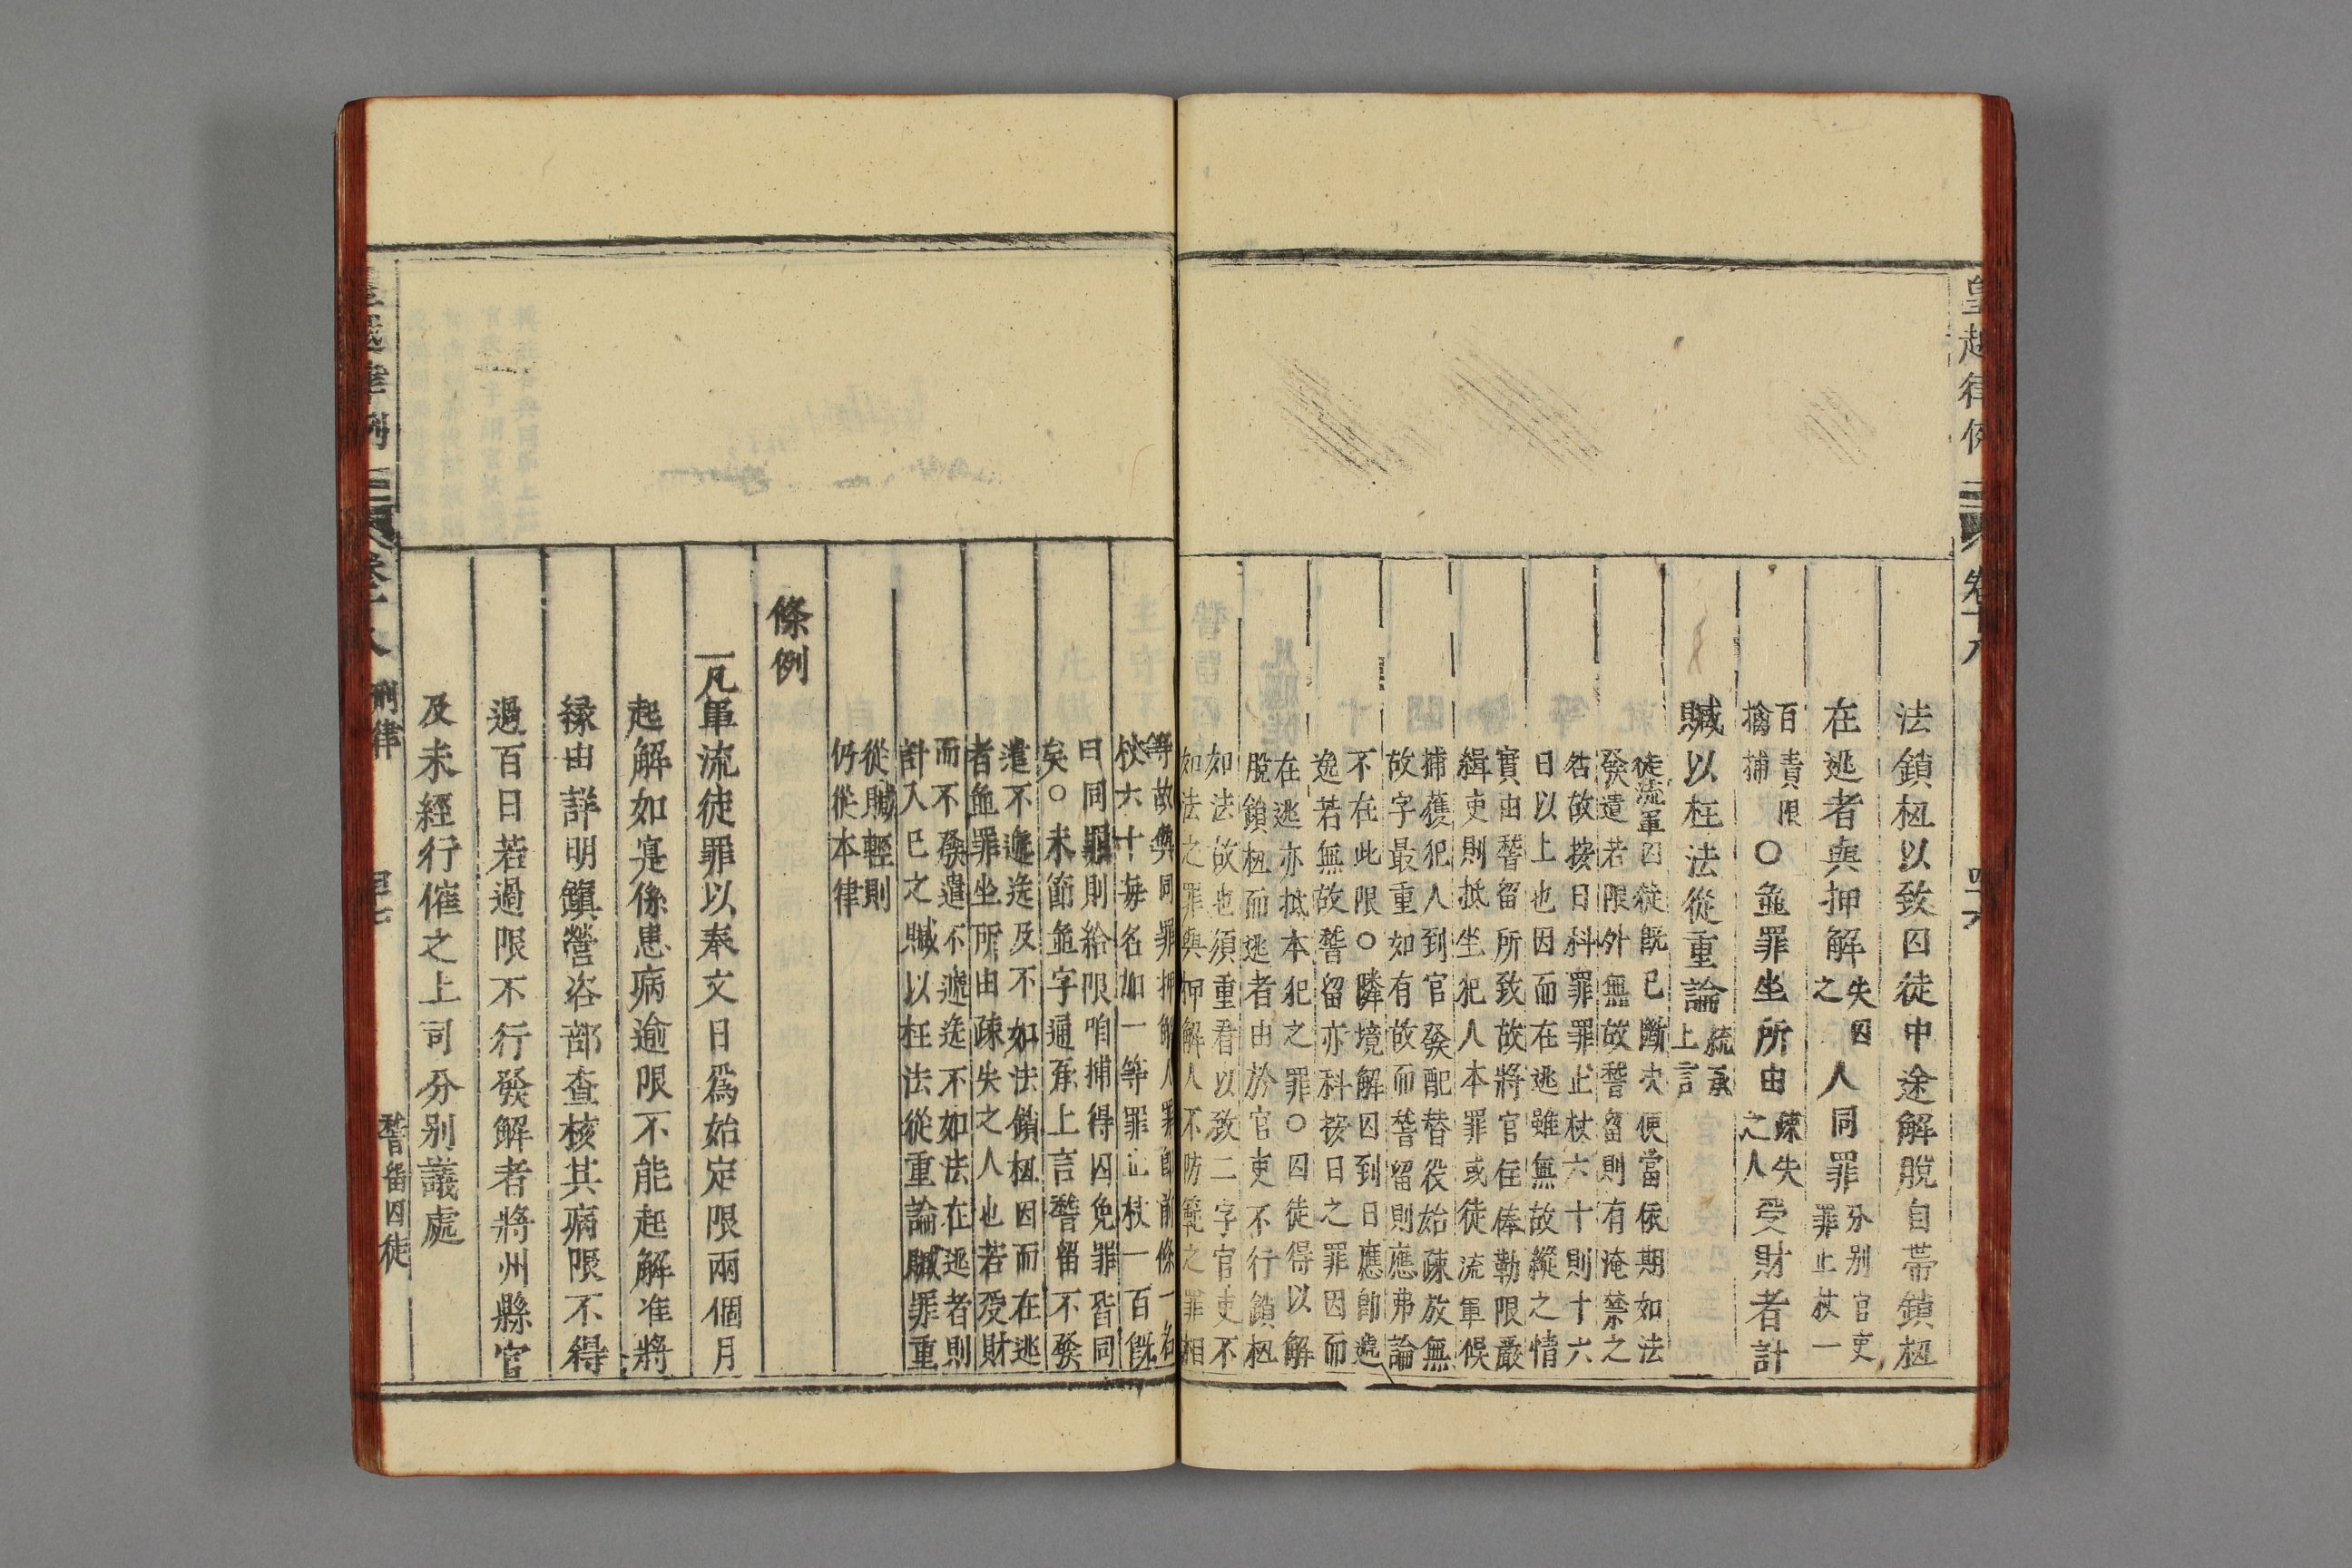 皇越律例 卷十八 四十六
法鎖杻以致囚徒中途解脫自帶鎖杻
在逃者與押解失囚之人同罪分別官吏罪止杖一
百責限擒捕○並罪坐所由疎失之人受財者計
贓以枉法從重論統承上言
徒流軍囚徒既已斷决便當依期如法
發遣若限外無故稽留則有淹禁之
咎故按日科罪罪止杖六十則十六
日以上也因而在逃雖無故縱之情
實由稽留所致故將官住俸勒限嚴
緝吏則抵坐犯人本罪或徒流軍候
捕獲犯人到官發配替役始疎放無
故字最重如有故而稽留則應弗論
不在此限○隣境解囚到日應卽遞
逸若無故稽留亦科按日之罪因而
在逃亦抵本犯之罪○囚徒得以解
脫鎖杻而逃者由於官吏不行鎖杻
如法故也須重看以致二字官吏不
如法之罪與押解人不防範之罪相
等故與同罪押解人罪卽前條一名
杖六十每名加一等罪止杖一百旣
曰同罪則給限咱捕得囚免罪皆同
矣○末節並字通承上言稽留不發
遣不遞送及不如法鎖杻因而在逃
者並罪坐所由疎失之人也若受財
而不發遣不遞送不如法在逃者則
計入已之贓以枉法從重論贓罪重
從贓輕則
仍從本律
條例
一凡軍流徒罪以奉文日爲始定限兩個月
起解如寔係患病逾限不能起解准將
縁由詳明鎭營咨部查核其病限不得
過百日若過限不行發解者將州縣官
及未經行催之上司分別議處
皇越律例 卷十八 刑律 四十七 稽留囚徒